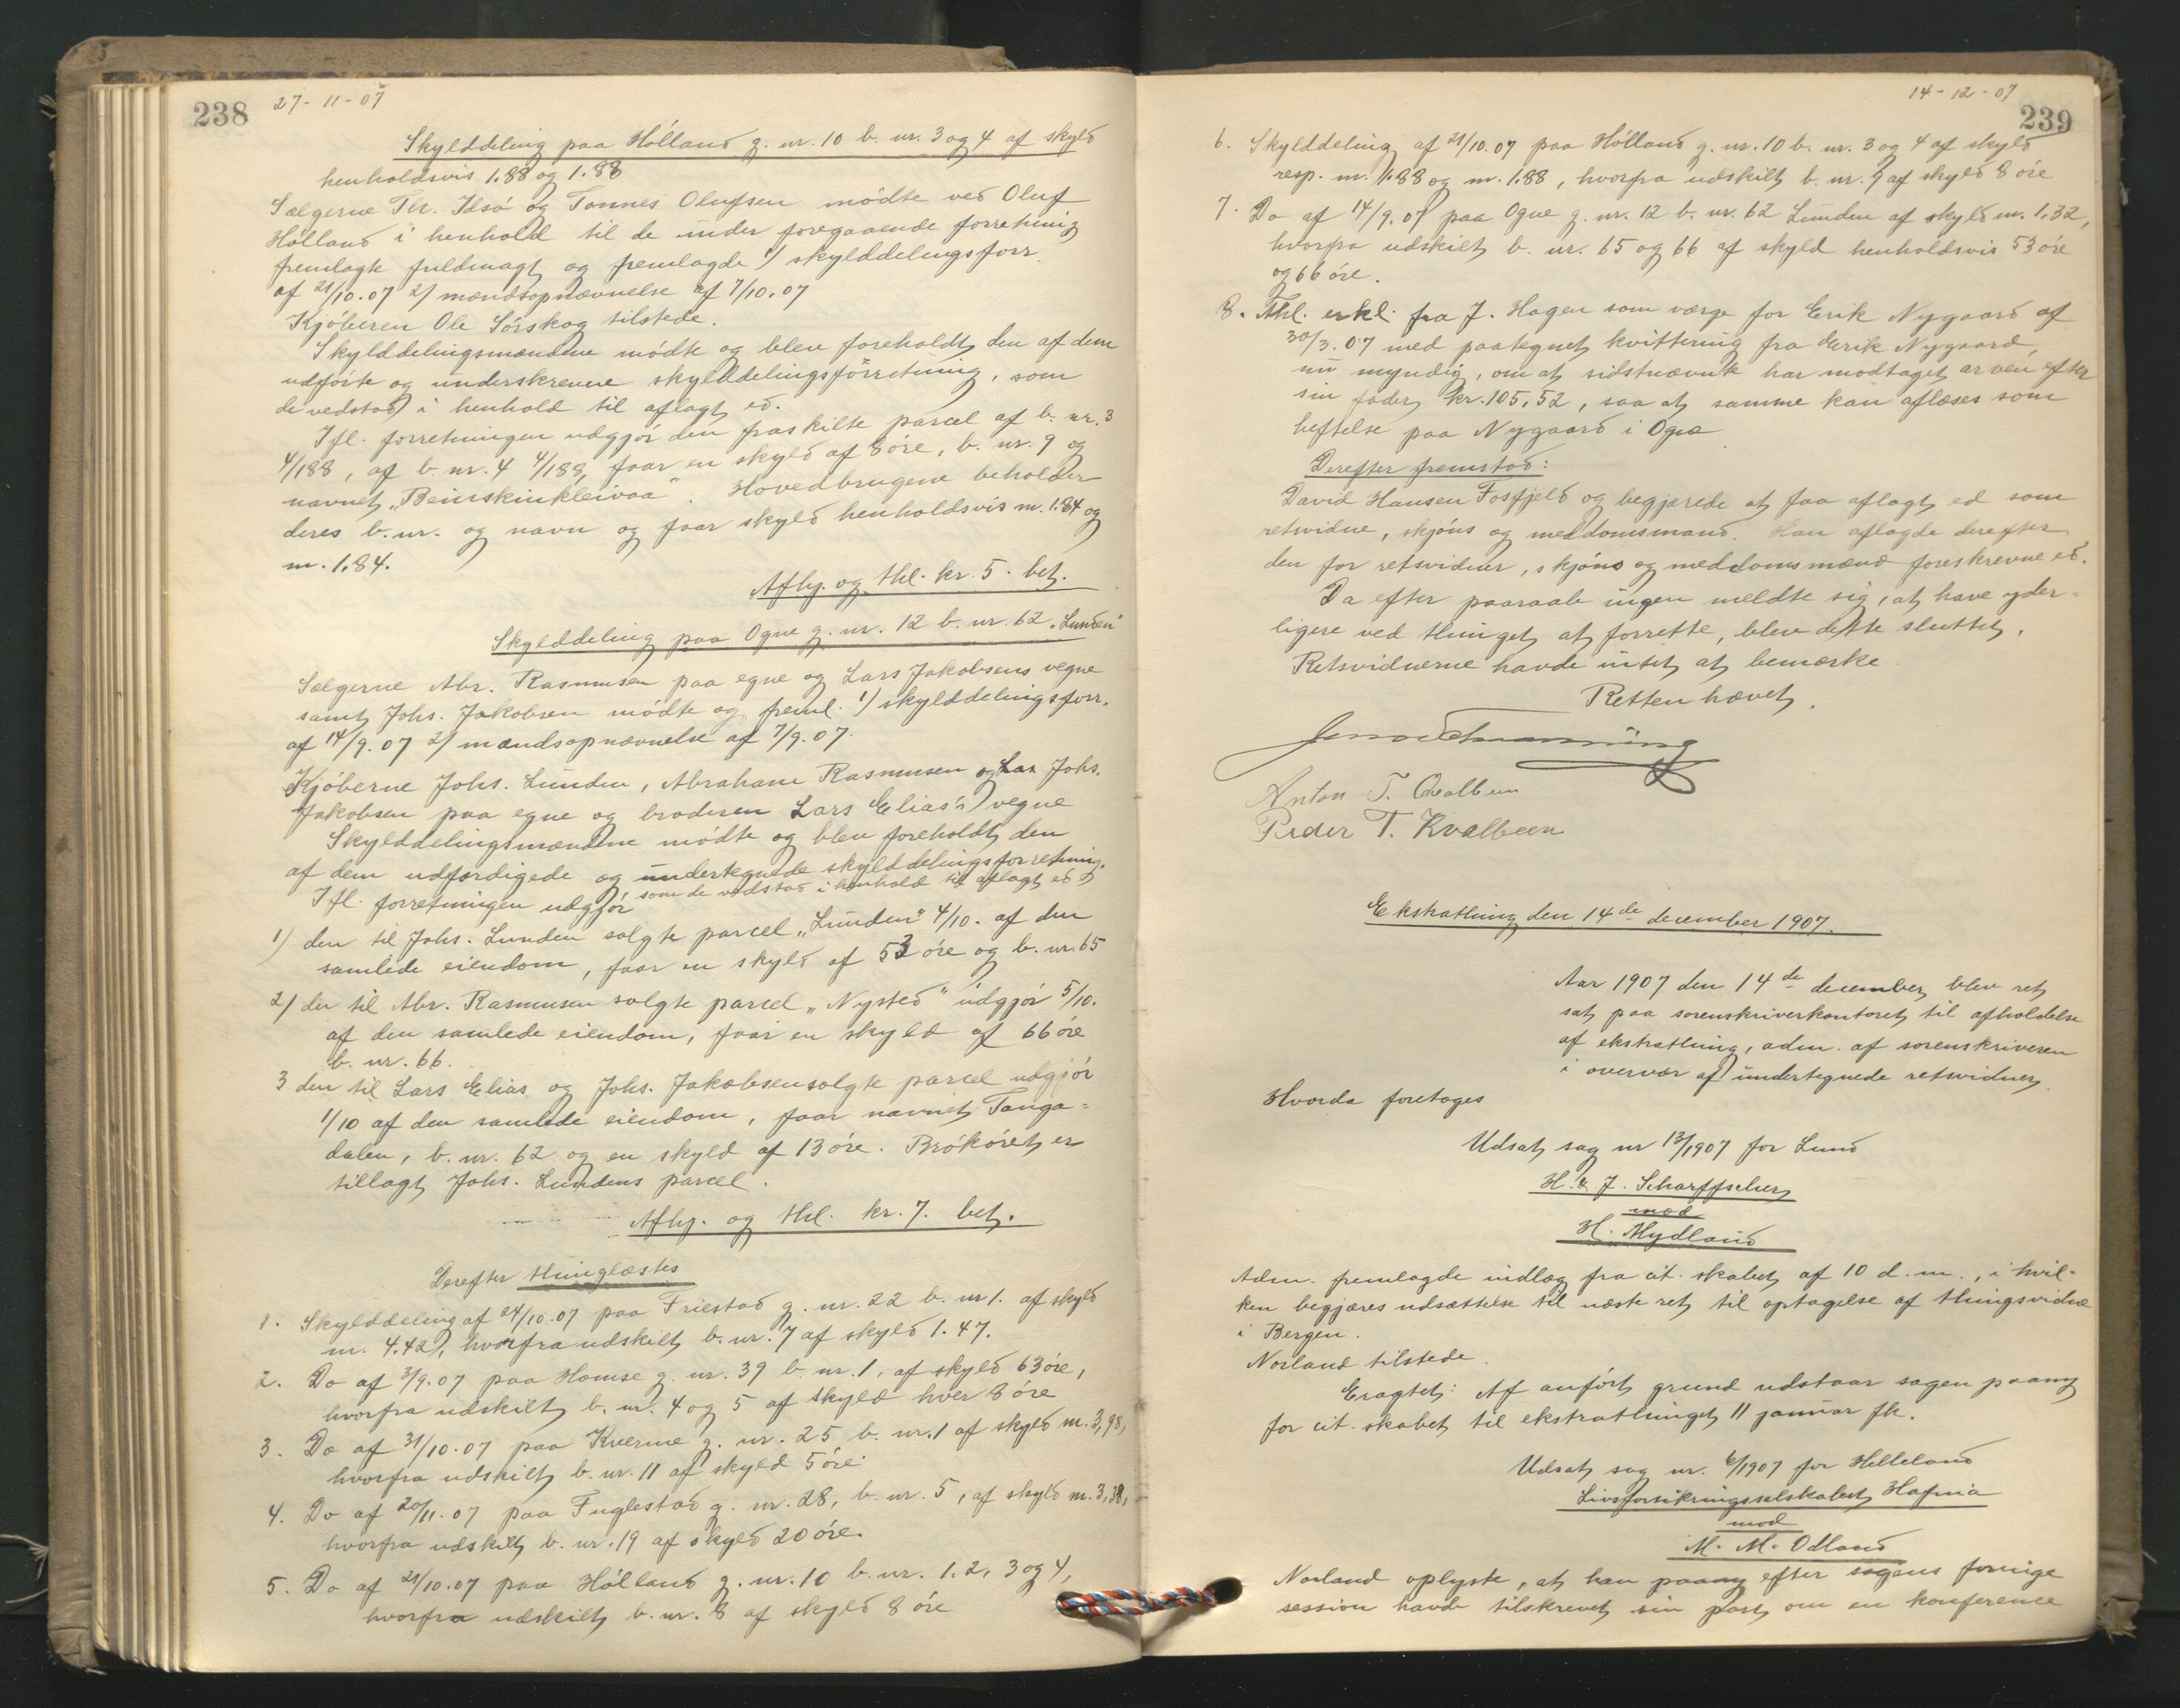 238
27-11-07
Skylddeling paa Hólland g. nr. 10 b. nr. 3 og 4 af skyld
henholdsvis 1.88 og 1.88
Sælgerne Th. Idsó og Tønnes Olufsen módte ved Oluf
Hólland i henhold til de under foregaaende forretning
fremlagte fuldmagt og fremlagde 1) skylddelingsforr.
af 21/10.07 2) mændsopnævnelse af 7/10.07
Kjóberen Ole Sórskog tilstede.
Skylddelingsmændene módte og blev foreholdt den af dem
udfórte og underskrevne skylddelingsforretning, som
de vedstod i henhold til aflagt ed.
Ifl. forretningen udgjór den fraskilte parcel af b. nr. 3
4/188, af b. nr. 4 4/188, faar en skyld af 8 óre, b. nr. 9 og
navnet „Beinskinkleivaa“. Hovedbrugene beholder
deres b. nr. og navn og faar skyld henholdsvis m. 1.84 og
m. 1.84.
Afhj. og thl. kr. 5. bet.
Skylddeling paa Ogne g. nr. 12 b. nr. 62 „Lunden“
Sælgerne Abr. Rasmusen paa egne og Lars Jakobsens vegne
samt Johs. Jakobsen módte og freml. 1) skylddelingsforr.
af 14/9.07 2) mændsopnævnelse af 7/9.07.
Kjóberne Johs. Lunden, Abraham Rasmusen og Lar Johs.
Jakobsen paa egne og broderen Lars Elias's vegne
Skylddelingsmændene módte og blev foreholdt den
af dem udfærdigede og undertegnede skylddelingsforretning.
som de vedstod i henhold til aflagt ed
Ifl. forretningen udgjór
1) den til Johs. Lunden solgte parcel „Lunden“ 4/10. af den
samlede eiendom, faar en skyld af 53 óre og b. nr. 65
2) den til Abr. Rasmusen solgte parcel „Nysted“ udgjór 5/10.
af den samlede eiendom, faar en skyld af 66 óre
b. nr. 66.
3 den til Lars Elias og Johs. Jakobsen solgte parcel udgjór
1/10 af den samlede eiendom, faar navnet Tanga=
dalen, b. nr. 62 og en skyld af 13 óre. Brókóret er
tillagt Johs. Lundens parcel.
Afhj. og thl. kr. 7. bet.
Derefter thinglæstes
1. Skylddeling af 24/10.07 paa Friestad g. nr. 22 b. nr 1. af skyld
m. 4.42, hvorfra udskilt b. nr. 7 af skyld 1.47.
2. Do af 3/9.07 paa Homse g. nr. 39 b. nr. 1, af skyld 63 óre,
hvorfra udskilt b. nr. 4 og 5 af skyld hver 8 óre
3. Do af 31/10.07 paa Kverme g. nr. 25 b. nr. 1 af skyld m. 3,98,
hvorfra udskilt b. nr. 11 af skyld 5 óre.
4. Do af 20/11.07 paa Fuglestad g. nr. 28, b. nr. 5, af skyld m. 3,38,
hvorfra udskilt b. nr. 19 af skyld 20 óre.
5. Do af 21/10.07 paa Hólland g. nr. 10 b. nr. 1. 2, 3 og 4,
hvorfra udskilt b. nr. 8 af skyld 8 óre
14-12-07
239
6. Skylddeling af 21/10.07 paa Hólland g. nr. 10 b. nr. 3 og 4 af skyld
resp. m. 1.88 og m. 1.88, hvorfra udskilt b. nr. 9 af skyld 8 óre
7. Do af 14/9.07 paa Ogne g. nr. 12 b. nr. 62 Lunden af skyld m. 1.32,
hvorfra udskilt b. nr. 65 og 66 af skyld henholdsvis 53 óre
og 66 óre.
8. Thl. erkl. fra J. Hagen som værge for Erik Nygaard af
30/3.07 med paategnet kvittering fra Erik Nygaard,
nu myndig, om at sidstnævnte har modtaget arven efter
sin fader kr. 105,52, saa at samme kan aflæses som
heftelse paa Nygaard i Ogne
Derefter fremstod:
David Hansen Fosfjeld og begjærede at faa aflagt ed som
retsvidne, skjóns og meddomsmand. Han aflagde derefter
den for retsvidner, skjóns og meddomsmænd foreskrevne ed.
Da efter paaraab ingen meldte sig, at have yder=
ligere ved thinget at forrette, blev dette sluttet.
Retsvidnerne havde intet at bemærke.
Retten hævet.
Anton T. Qvalbeen
Peder T. Kvalbeen
Ekstrathing den 14de december 1907.
Aar 1907 den 14de december, blev ret
sat paa sorenskriverkontoret til afholdelse
af ekstrathing, adm. af sorenskriveren
i overvær af undertegnede retsvidner.
Hvorda foretoges
Udsat sag nr 13/1907 for Lund
H. & J. Scharffscher
mod
H. Mydland
Adm. fremlagde indlæg fra cit. skabet af 10 d. m., i hvil=
ken begjæres udsættelse til næste ret til optagelse af thingsvidne
i Bergen.
Norland tilstede.
Eragtet: Af anfórt grund udstaar sagen paany
for cit. skabet til ekstrathinget 11 januar fk.
Udsat sag nr. 6/1907 for Helleland
Livsforsikringsselskabet Hafnia
mod
M. M. Odland
Norland oplyste, at han paany efter sagens forrige
session havde tilskrevet sin part om en konference